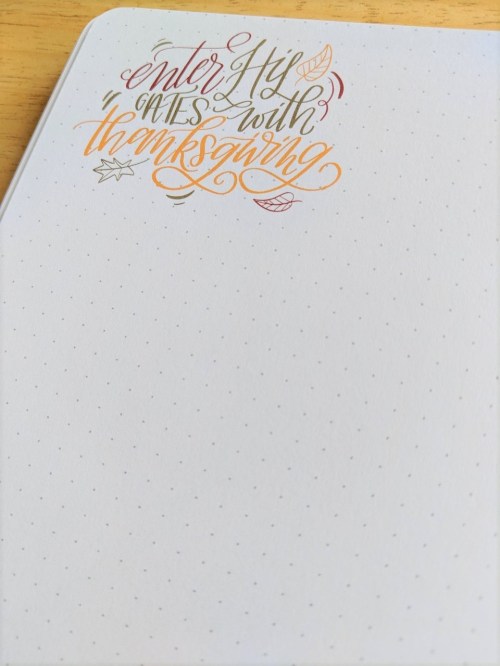 enter His
GATES with
thanksgiving